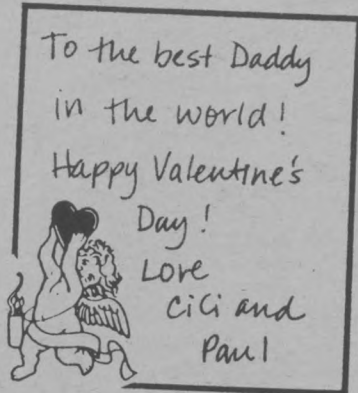 To the best Daddy
in the world!
Happy Valentine's
Day!
Love
CiCi and
Paul